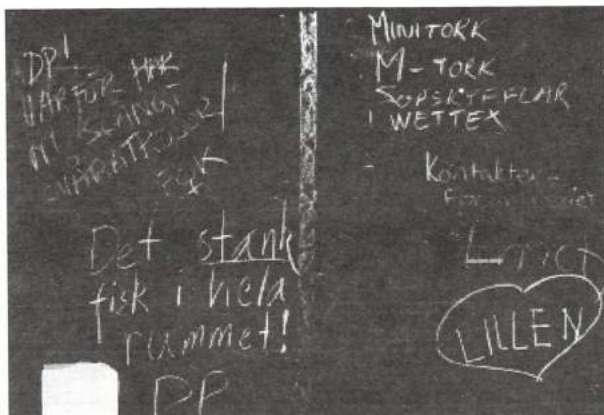 DP!
VARFÖR HAR
NI SLÄNGT
VÅRA TROSOR?
Det stank
fisk i hela
rummet!
DP
MINITORK
M-TORK
SOPSKYFFLAR
1 WETTEX
Kontakter-
LILLEN